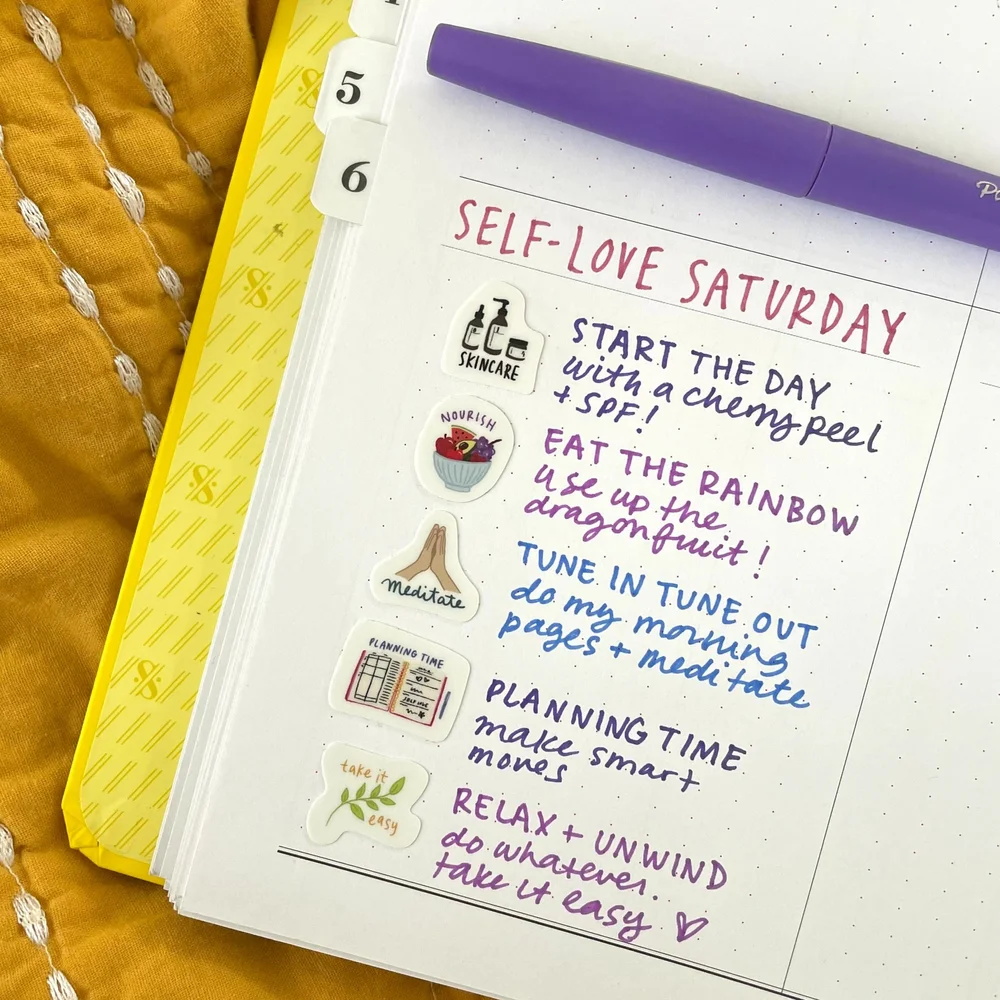 5
6
SELF-LOVE SATURDAY
SKINCARE
START THE DAY
with a cherry peel
+ SPF!
NOURISH
EAT THE RAINBOW
use up the
dragonfruit!
meditate
TUNE IN TUNE OUT
do my morning
pages + meditate
PLANNING TIME
SELF LOVE
PLANNING TIME
make smart
moves
take it
easy
RELAX + UNWIND
do whatever.
take it easy ♡